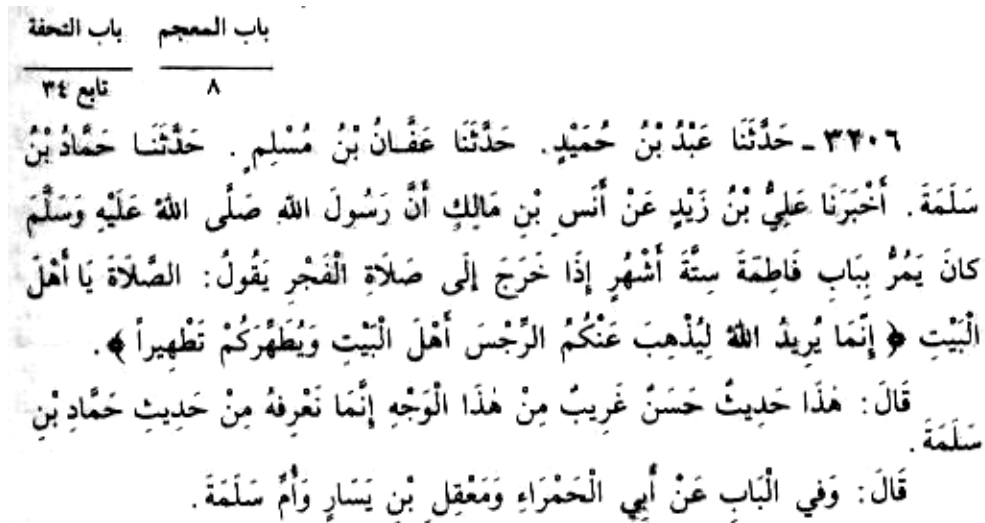 باب المعجم    باب التحفة
٨    تابع ٣٤
٣٢٠٦ ـ حَدَّثَنَا عَبْدُ بْنُ حُمَيْدٍ. حَدَّثَنَا عَفَّانُ بْنُ مُسْلِمٍ. حَدَّثَنَا حَمَّادُ بْنُ
سَلَمَةَ. أَخْبَرَنَا عَلِيُّ بْنُ زَيْدٍ عَنْ أَنَسِ بْنِ مَالِكٍ أَنَّ رَسُولَ اللهِ صَلَّى اللهُ عَلَيْهِ وَسَلَّمَ
كانَ يَمُرُّ بِبَابِ فَاطِمَةَ سِتَّةَ أَشْهُرٍ إِذَا خَرَجَ إِلَى صَلَاةِ الْفَجْرِ يَقُولُ: الصَّلَاةَ يَا أَهْلَ
الْبَيْتِ ﴿ إِنَّمَا يُرِيدُ اللهُ لِيُذْهِبَ عَنْكُمُ الرِّجْسَ أَهْلَ الْبَيْتِ وَيُطَهِّرَكُمْ تَطْهِيراً ﴾.
قَالَ: هٰذَا حَدِيثٌ حَسَنٌ غَرِيبٌ مِنْ هٰذَا الْوَجْهِ إِنَّمَا نَعْرِفُهُ مِنْ حَدِيثِ حَمَّادِ بْنِ
سَلَمَةَ.
قَالَ: وَفي الْبَابِ عَنْ أَبِي الْحَمْرَاءِ وَمَعْقِلِ بْنِ يَسَارٍ وَأُمِّ سَلَمَةَ.